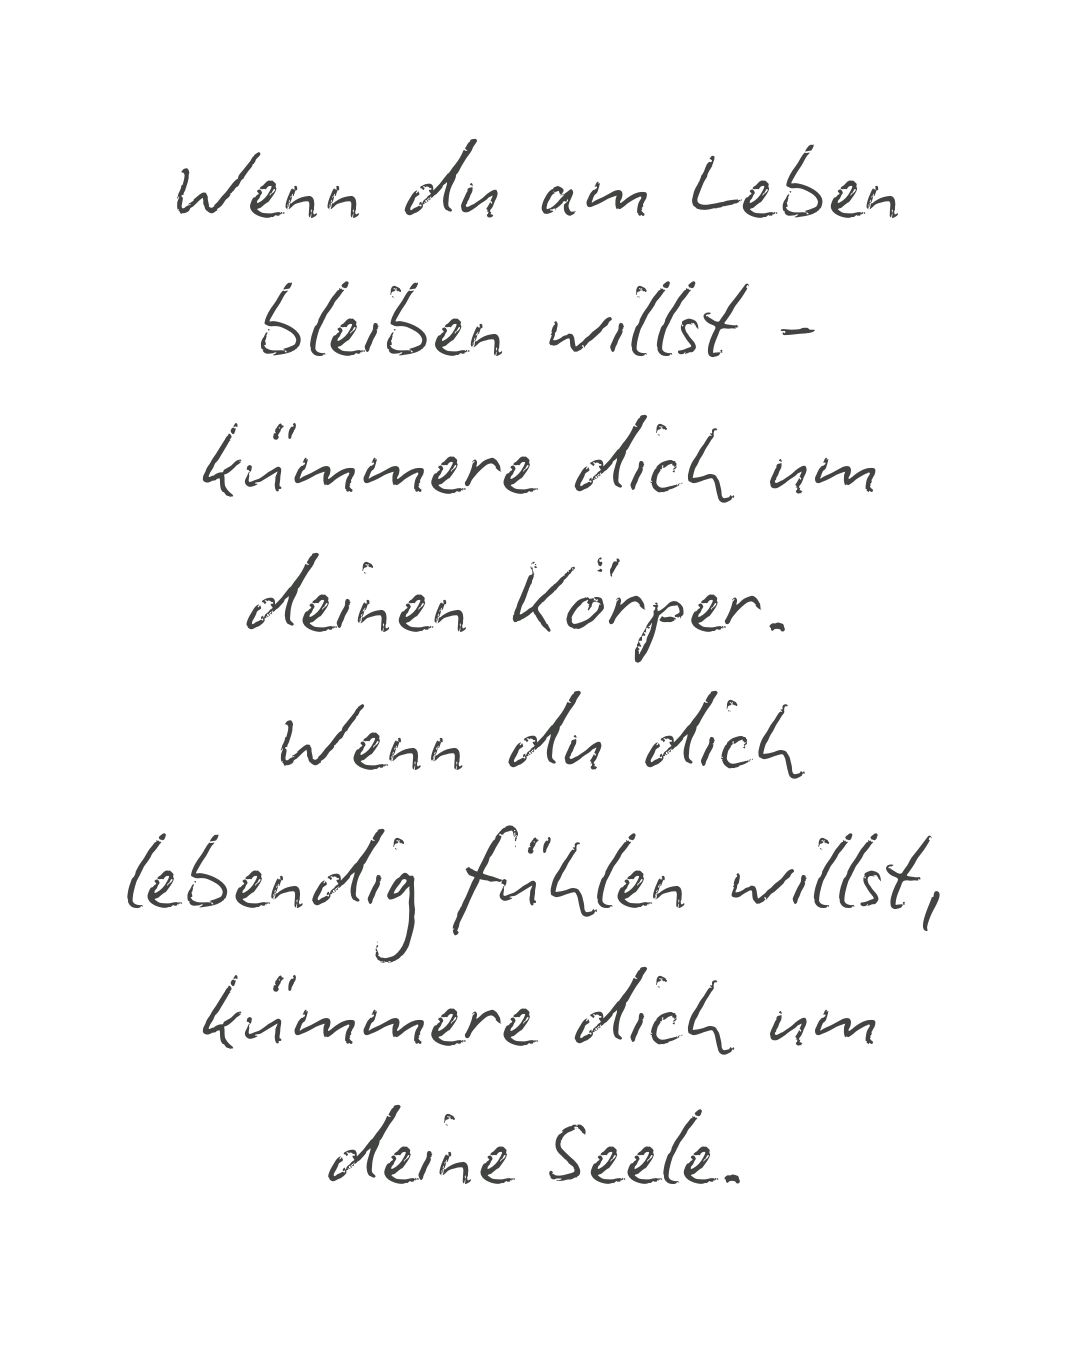 Wenn du am Leben
bleiben willst -
kümmere dich um
deinen Körper.
Wenn du dich
lebendig fühlen willst,
kümmere dich um
deine Seele.